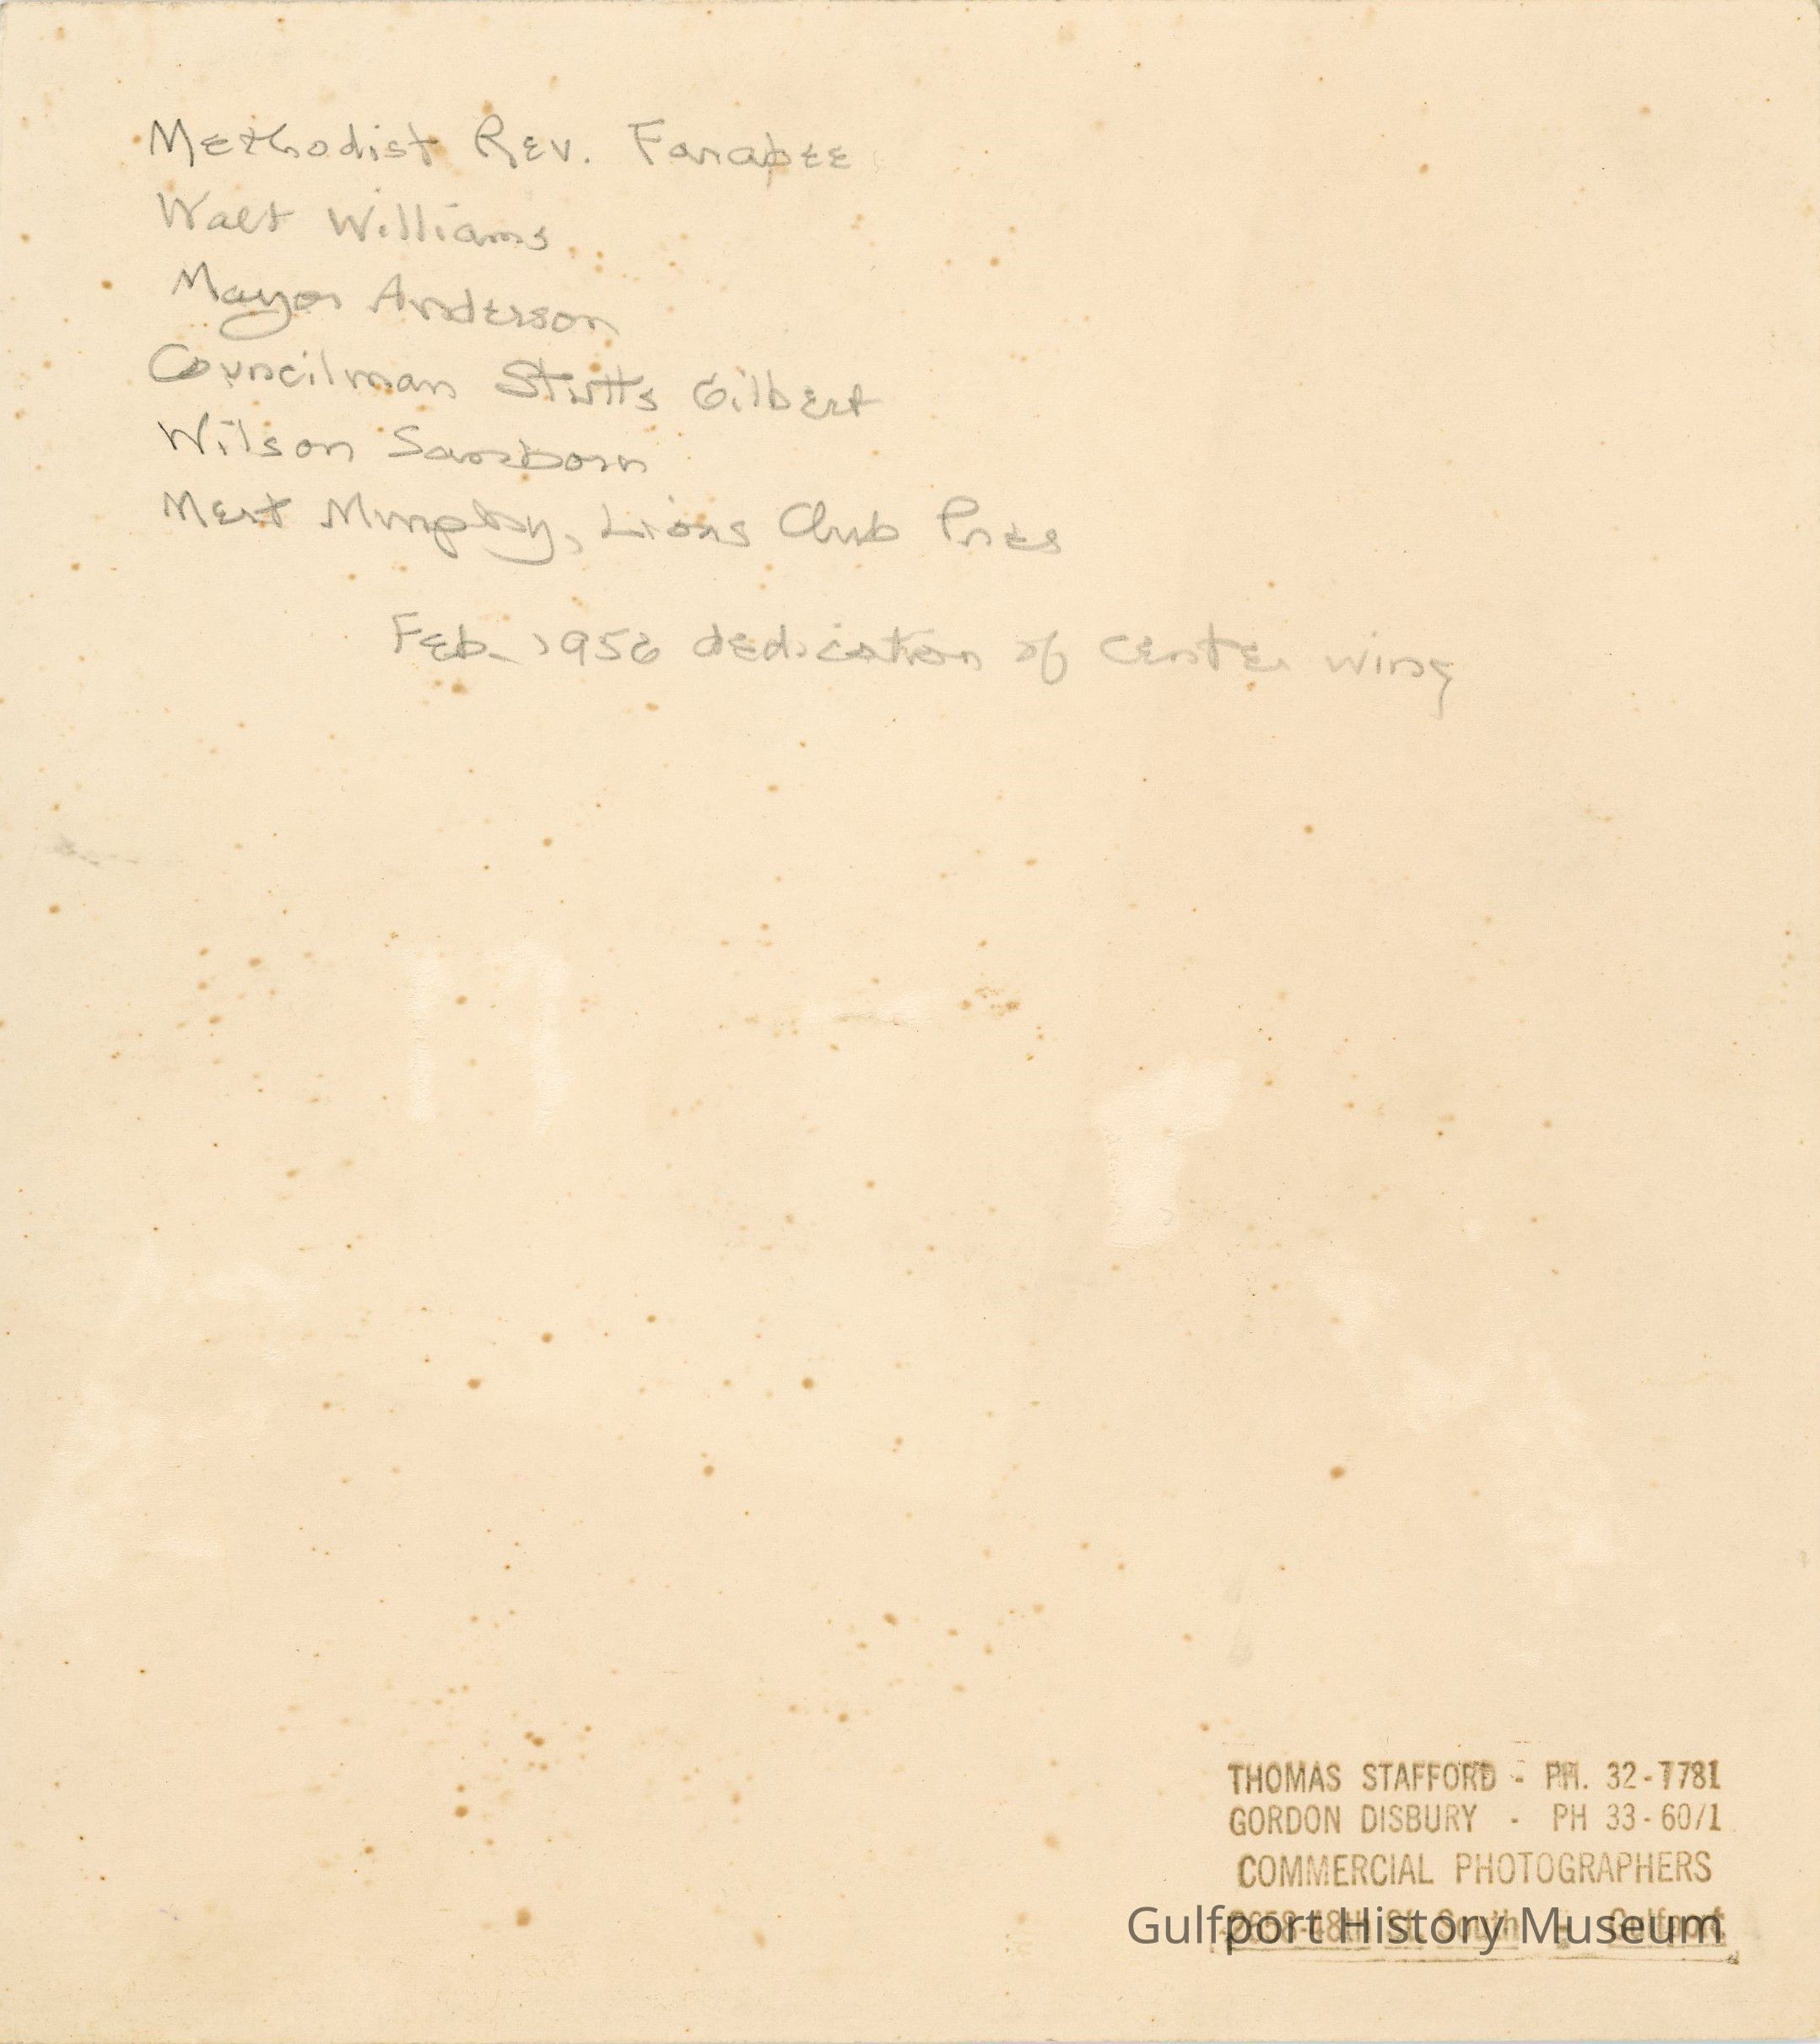 Methodist Rev. Farabee
Walt Williams
Mayor Anderson
Councilman Stutts Gilbert
Wilson Sanborn
Mert Murphy, Lions Club Pres
Feb. 1956 dedication of center wing
THOMAS STAFFORD - PH. 32-7781
GORDON DISBURY - PH 33-60/1
COMMERCIAL PHOTOGRAPHERS
Gulfport
Gulfport History Museum